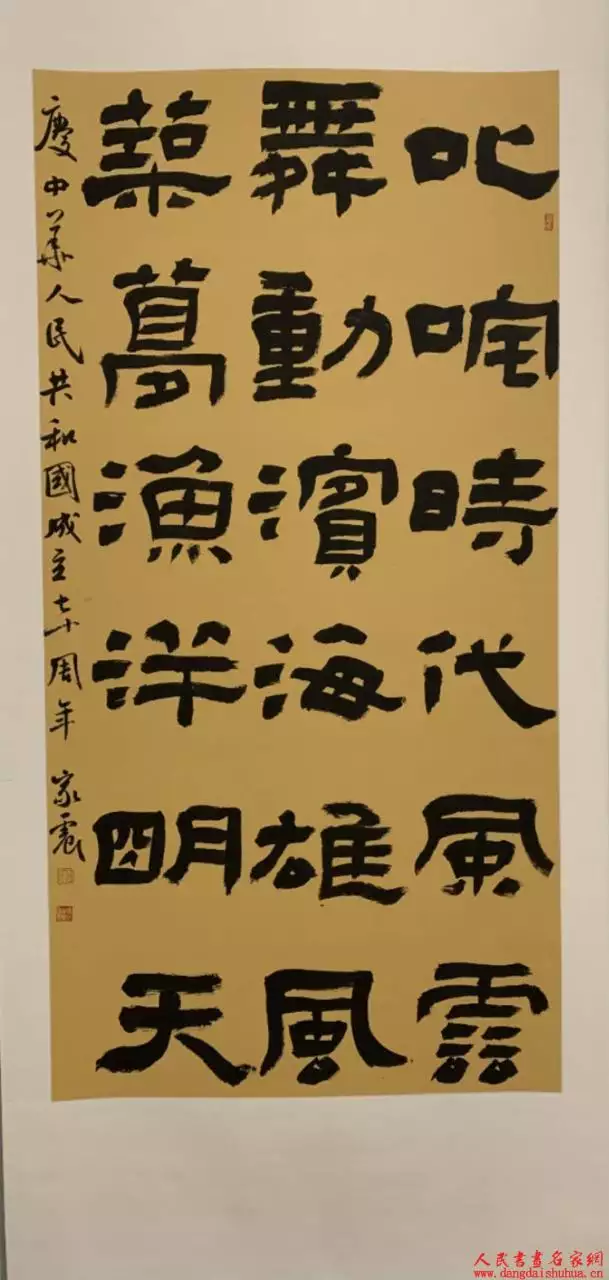 叱咤時代風雲
舞動濱海雄風
築夢漁洋明天
慶中華人民共和國成立七十周年 家震
人民書畫名家網
www.dangdaishuhua.cn